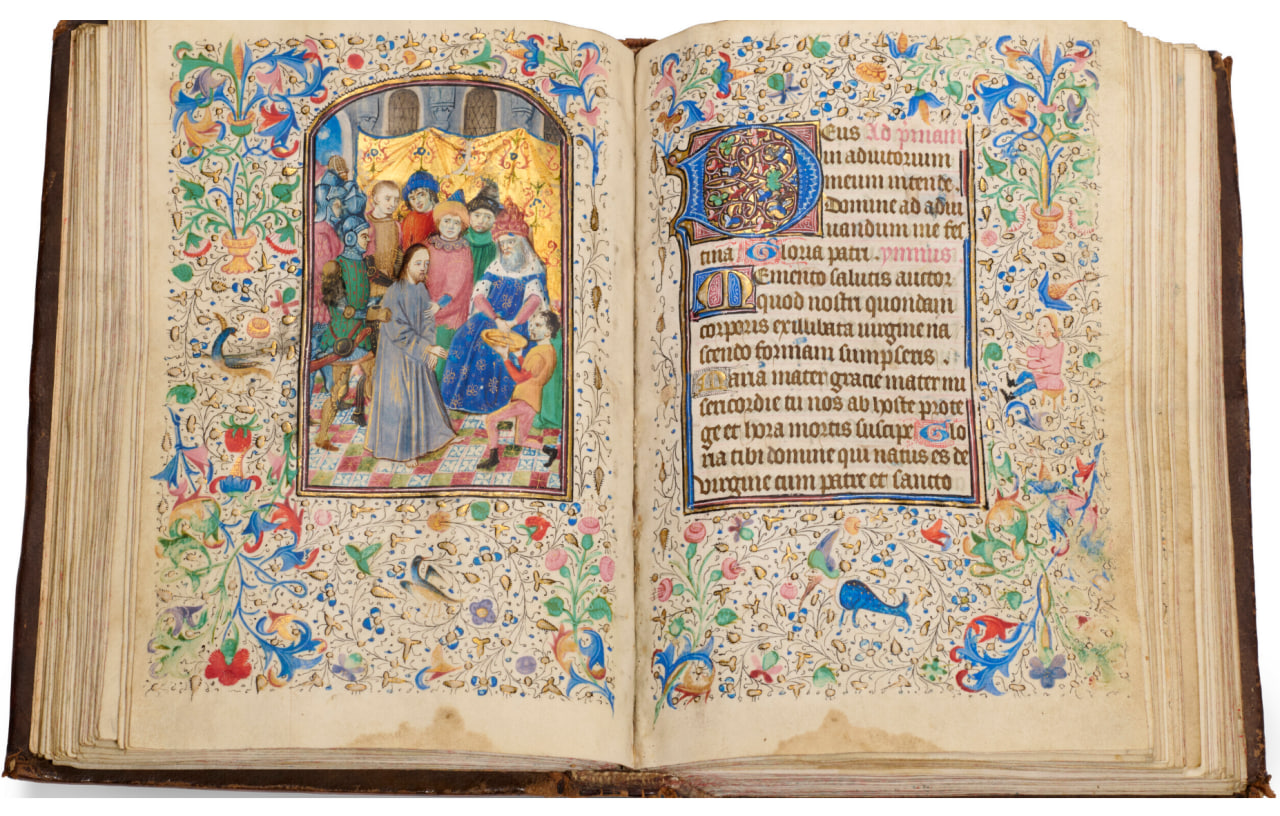 Deus Ad primam
in adiutorium
meum intende.
Domine ad adiu
uandum me fes
tina Gloria patri. ympnus
Memento salutis auctor
quod nostri quondam
corporis ex illibata uirgine na
scendo formam sumpseris
Maria mater gracie mater mi
sericordie tu nos ab hoste prote
ge et hora mortis suscipe Glo
ria tibi domine qui natus es de
uirgine cum patre et sancto